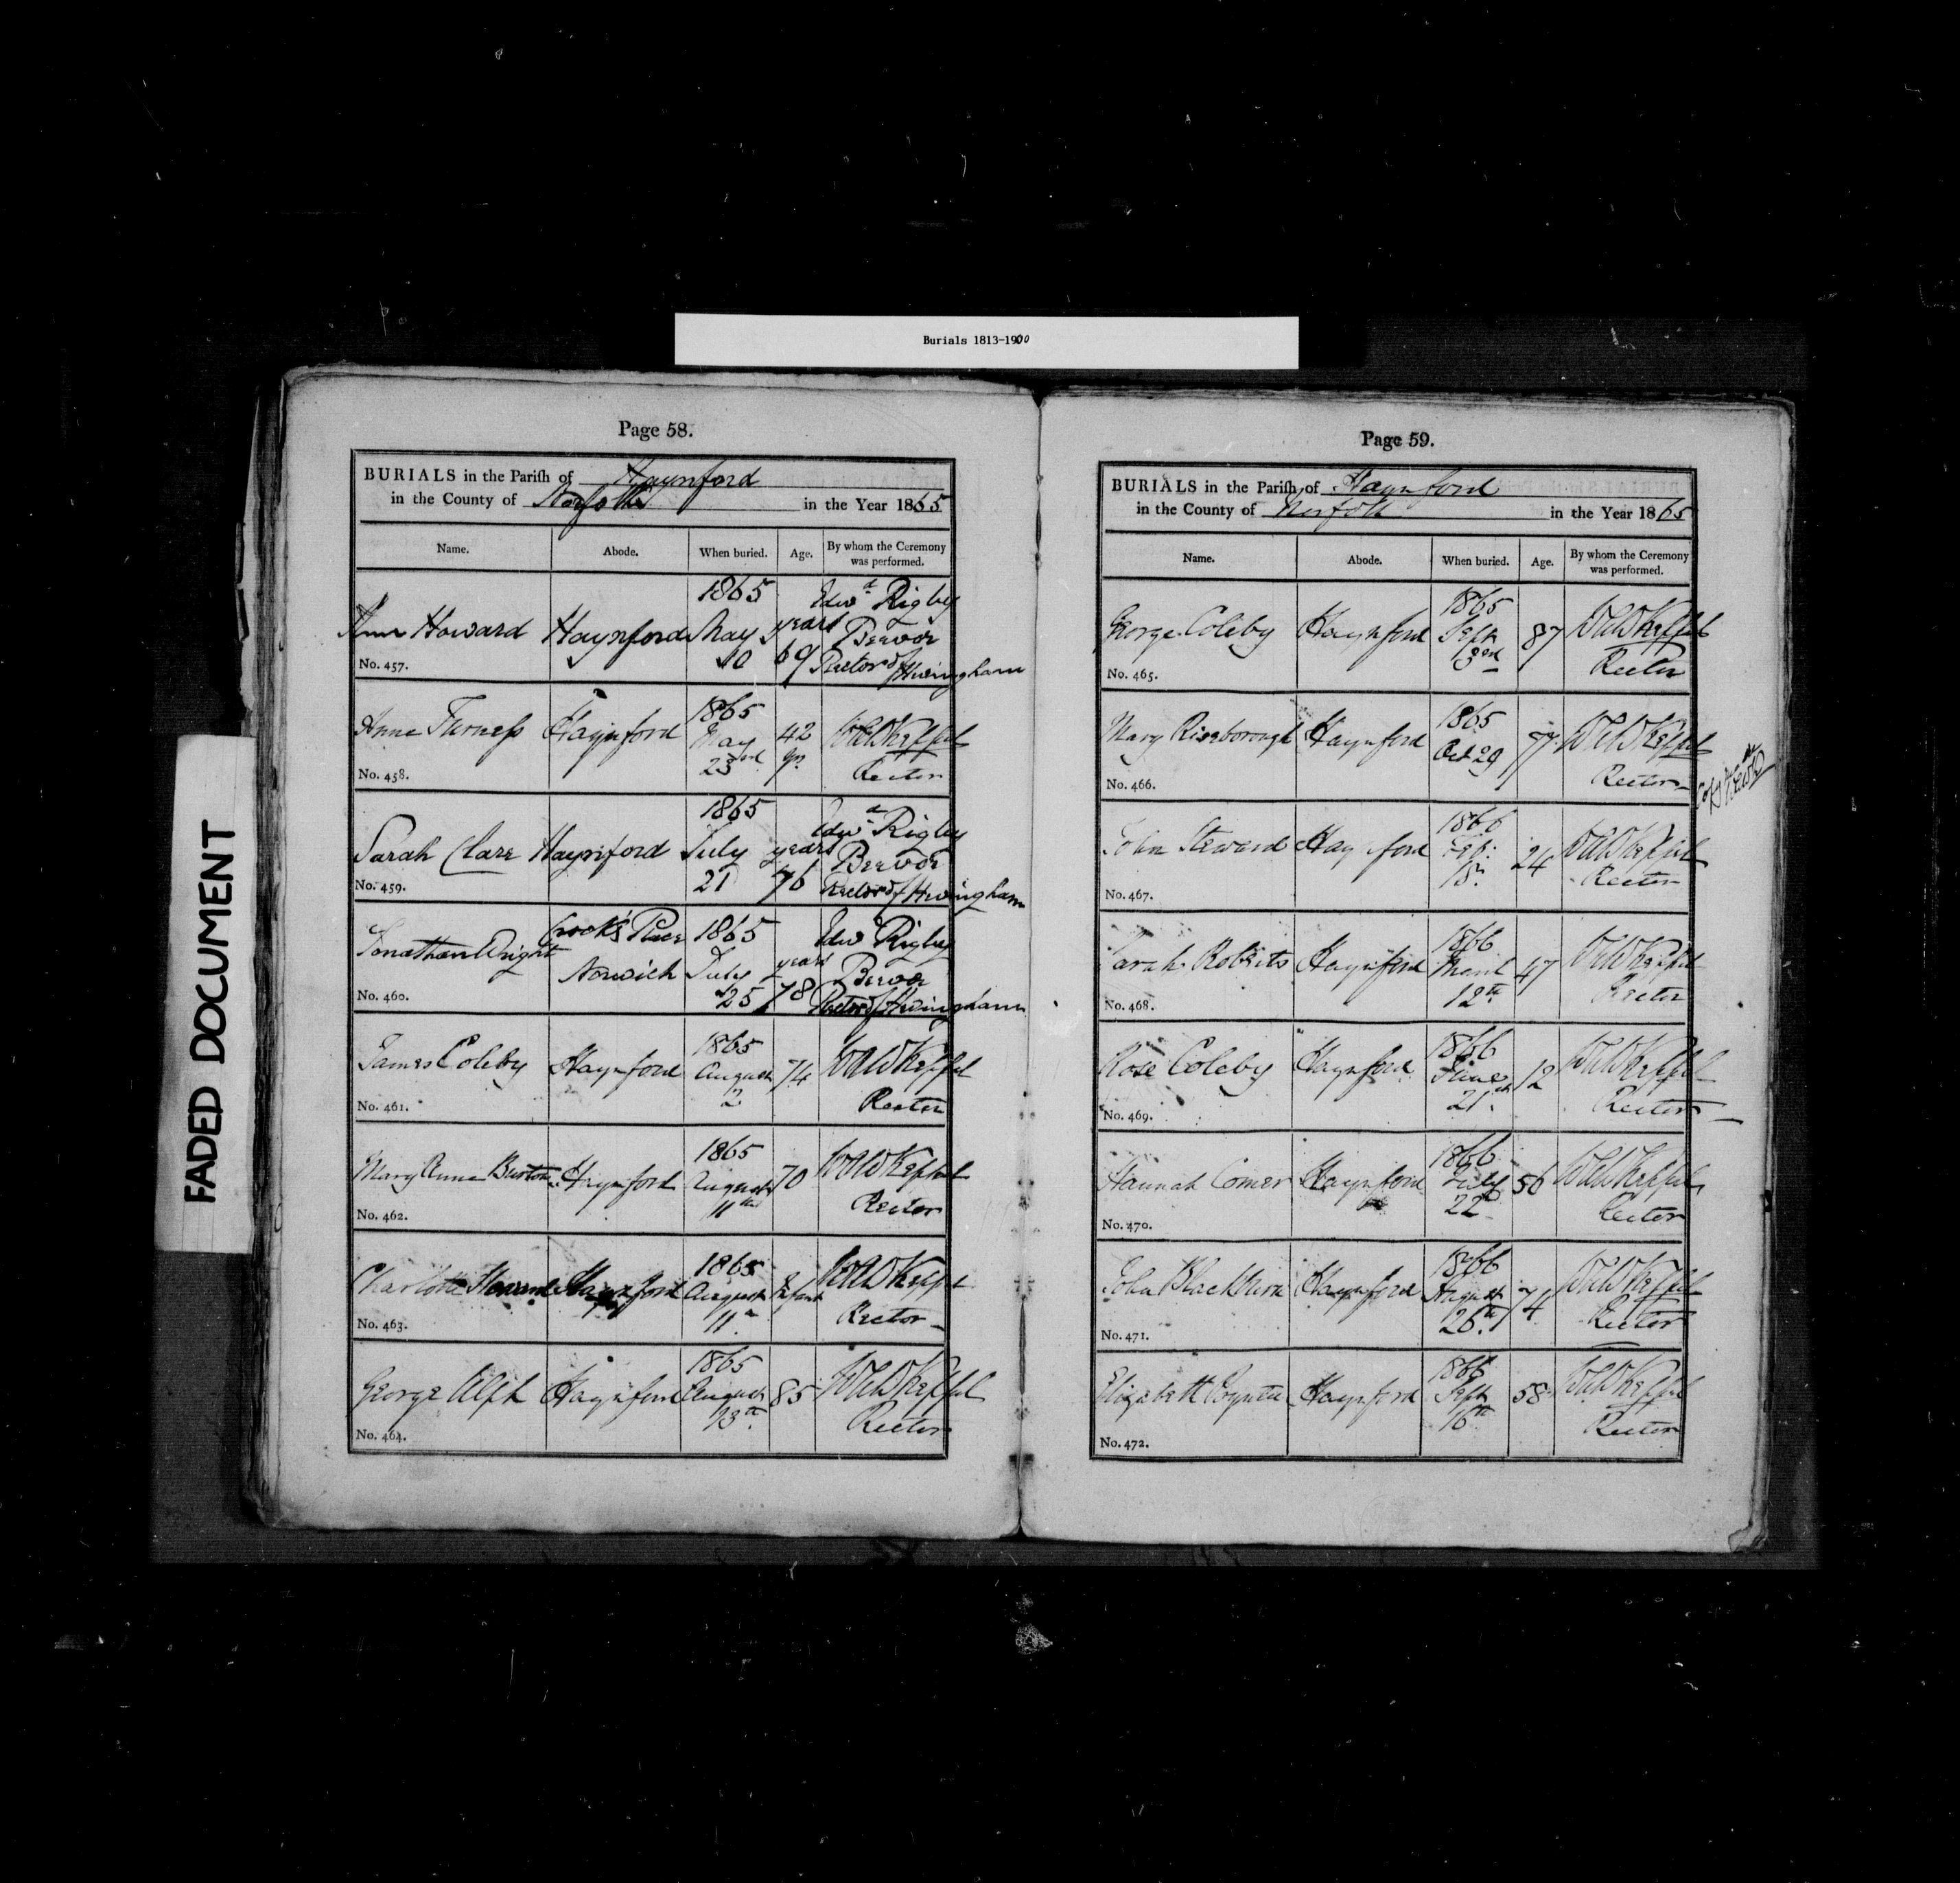 Burials 1813-1900
FADED DOCUMENT
Page 58.
BURIALS in the Parish of Haynford
in the County of Norfolk in the Year 1865
Name. Abode. When buried. Age. By whom the Ceremony was performed.
Ann Howard Haynford 1865 May 10 years 69 Edwd Rigby Beevor Rector of Hevingham
No. 457.
Anne Furness Haynford 1865 May 23rd 42 yrs Rector
No. 458.
Sarah Clare Haynford 1865 July 21 years 76 Edwd Rigby Beevor Rector of Hevingham
No. 459.
Jonathan Wright Crook's Place Norwich 1865 July 25 years 78 Edwd Rigby Beevor Rector of Hevingham
No. 460.
James Coleby Haynford 1865 August 2 74 W A W Keppel Rector
No. 461.
Mary Anne Burton Haynford 1865 August 11th 70 W A W Keppel Rector
No. 462.
Charlotte Howard Haynford 1865 August 11th Infant W A W Keppel Rector
No. 463.
George Haynford 1865 August 13th 85 W A W Keppel Rector
No. 464.
Page 59.
BURIALS in the Parish of Haynford
in the County of Norfolk in the Year 1865
Name. Abode. When buried. Age. By whom the Ceremony was performed.
George Coleby Haynford 1865 Sept 3rd 87 W A W Keppel Rector
No. 465.
Mary Riseborough Haynford 1865 Oct 29 77 W A W Keppel Rector
No. 466.
John Steward Haynford 1866 Feb: 24 W A W Keppel Rector
No. 467.
Sarah Roberts Haynford 1866 March 12th 47 W A W Keppel Rector
No. 468.
Rose Coleby Haynford 1866 June 21 12 W A W Keppel Rector
No. 469.
Hannah Comer Haynford 1866 July 22 56 W A W Keppel Rector
No. 470.
John Blackburn Haynford 1866 August 26th 74 W A W Keppel Rector
No. 471.
Elizabeth Poynter Haynford 1866 Sept 16th 58 W A W Keppel Rector
No. 472.